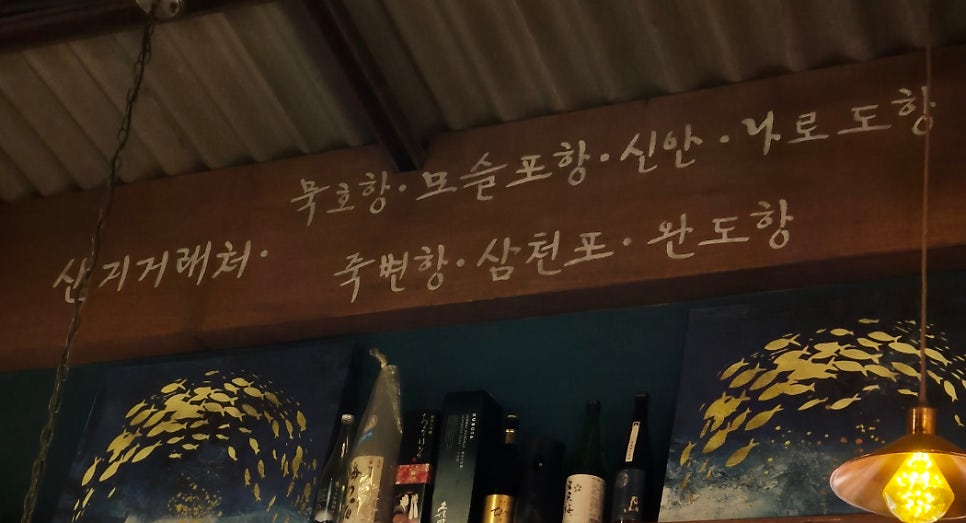 묵호항·모슬포항·신안·나로도항
산지거래처·
죽변항·삼천포·완도항